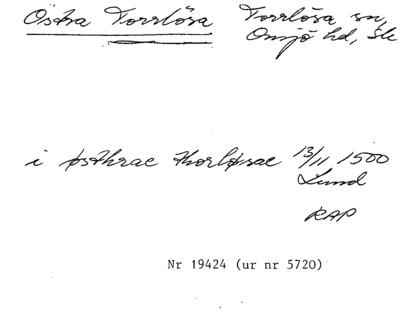 Östra Torrlösa Torrlösa sn,
Onsjö hd, Sk
i østhrae thorløsae 13/11 1500
Lund
RAP
Nr 19424 (ur nr 5720)